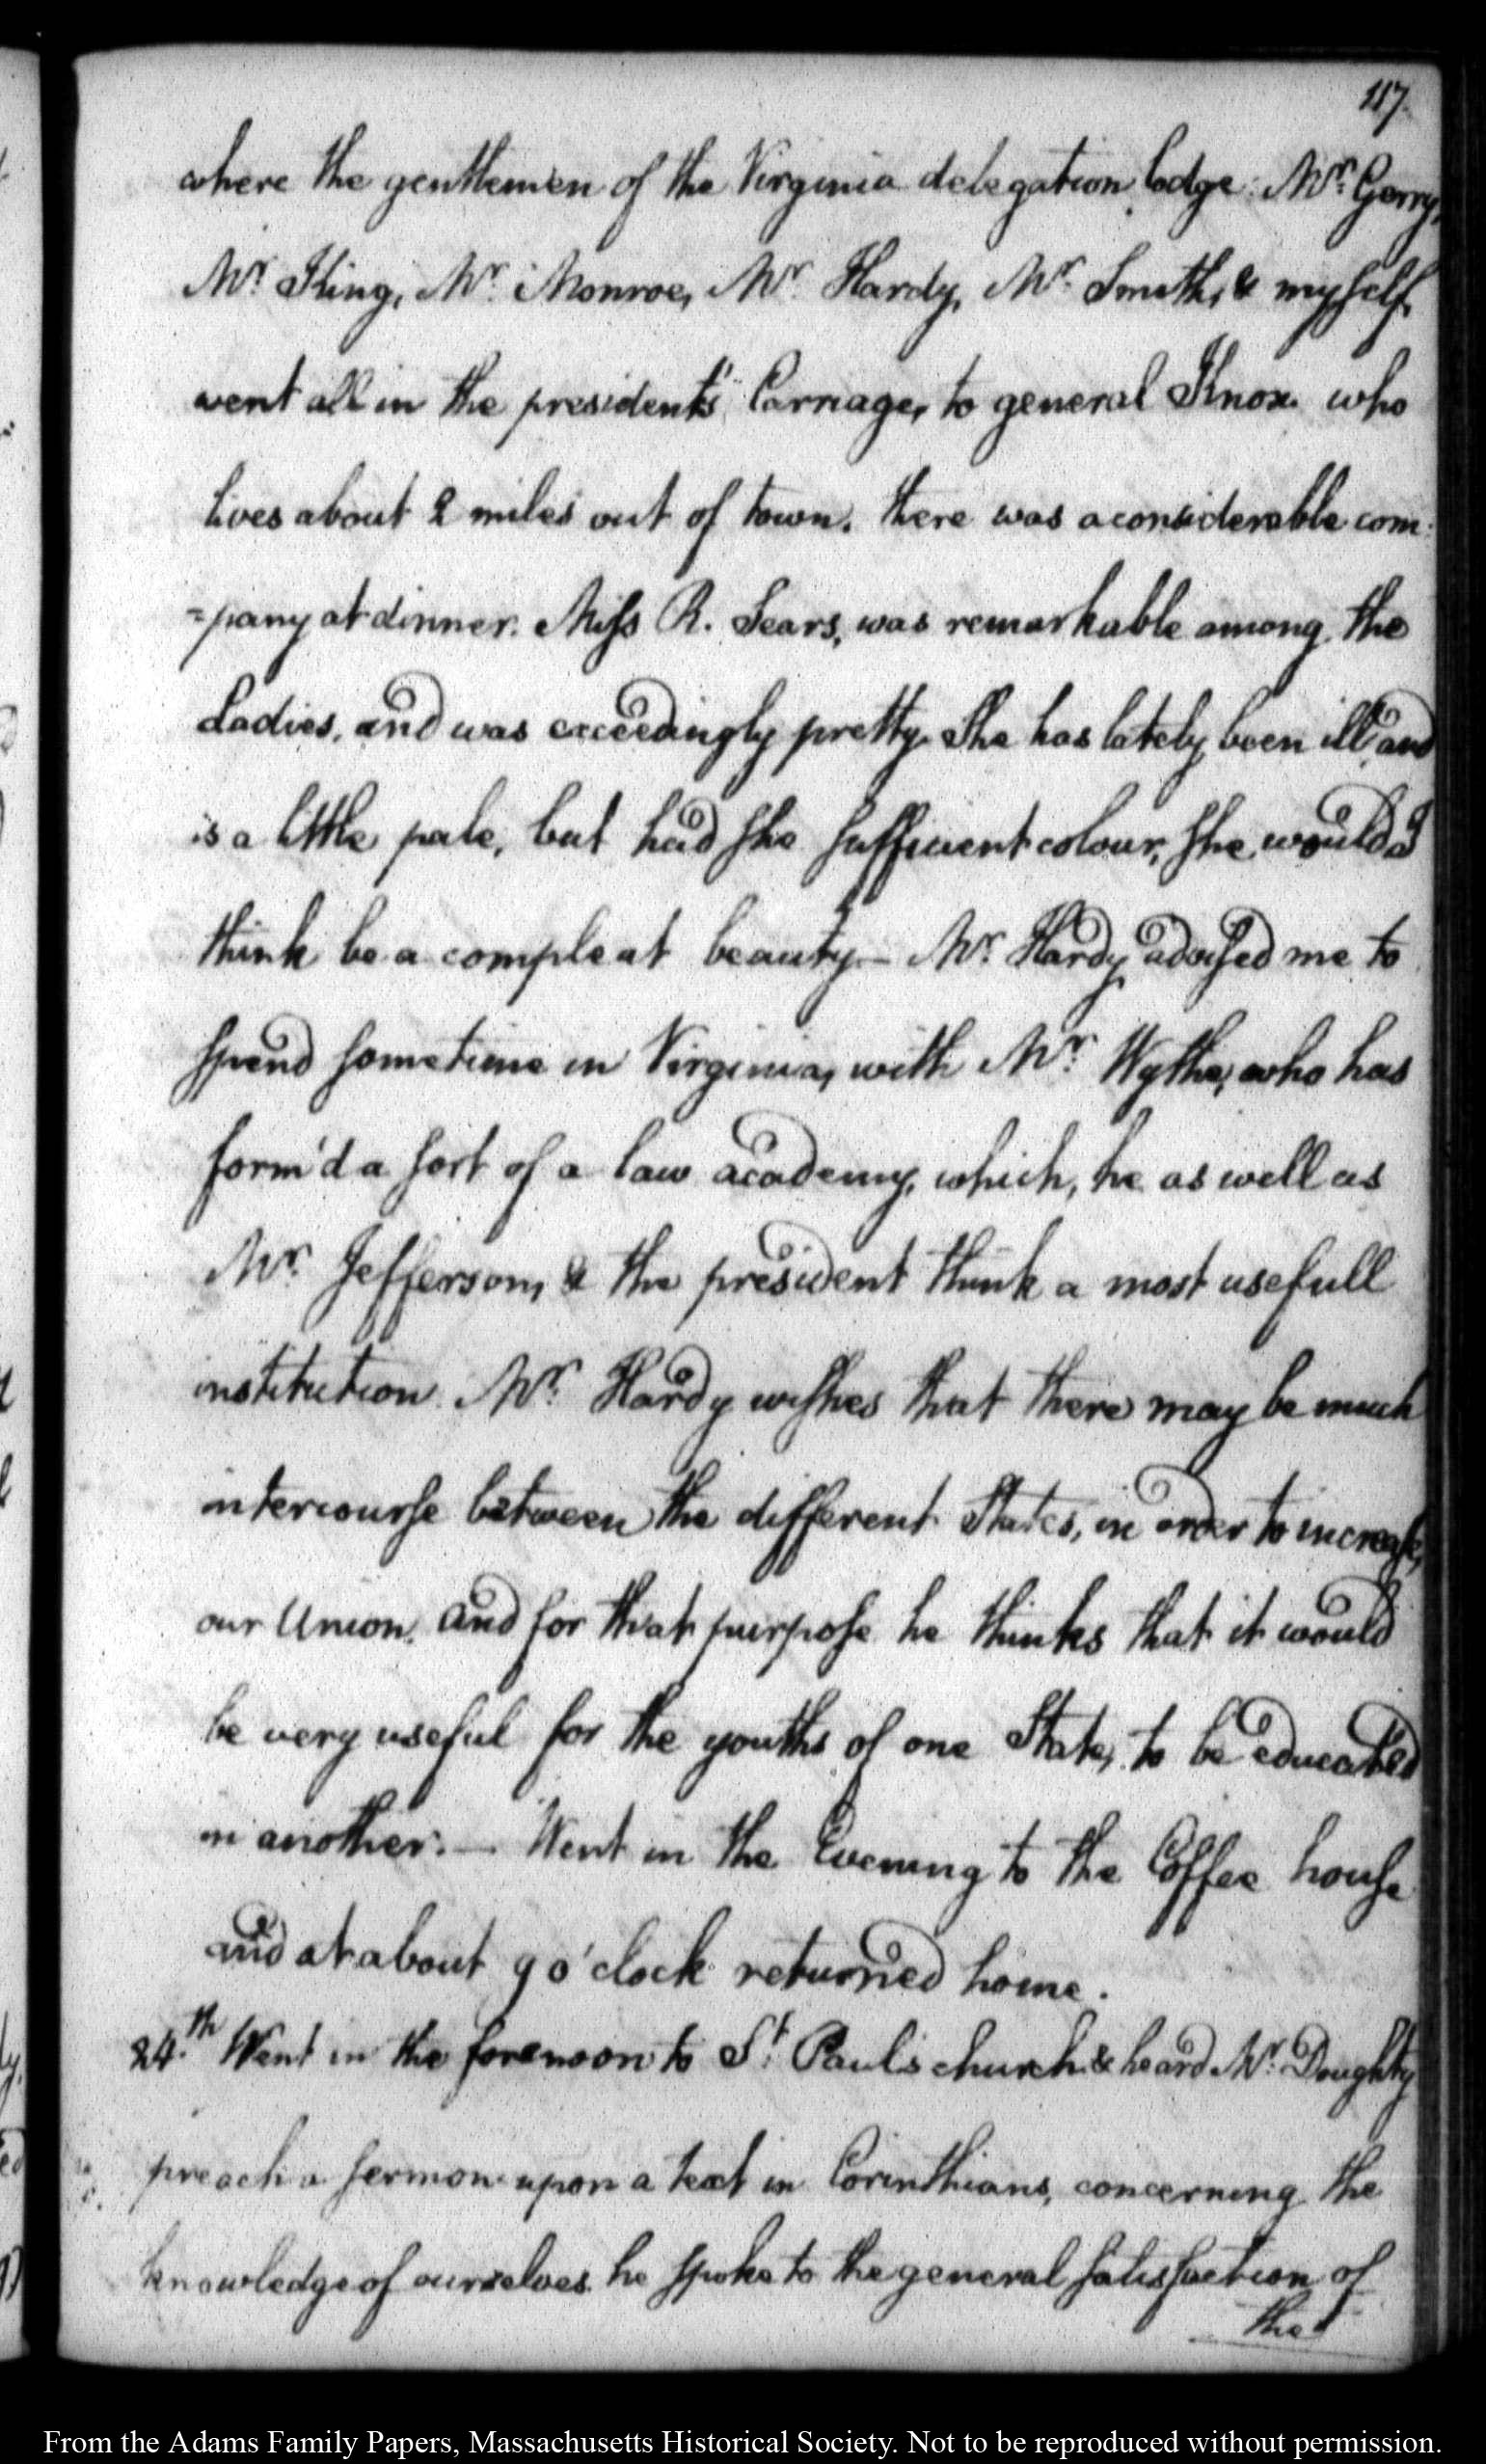 117.
where the gentlemen of the Virginia delegation lodge. Mr. Gerry,
Mr. King, Mr. Monroe, Mr. Hardy, Mr. Smith, & myself
went all in the president's Carriage, to general Knox. who
lives about 2 miles out of town. there was a considerable com-
=pany at dinner. Miss R. Sears, was remarkable among the
Ladies, and was exceedingly pretty. She has lately been ill and
is a little pale, but had she sufficient colour, she would I
think be a compleat beauty.— Mr. Hardy advised me to
spend sometime in Virginia, with Mr. Wythe, who has
form'd a sort of a law academy, which, he as well as
Mr. Jefferson, & the president think a most usefull
institution. Mr. Hardy wishes that there may be much
intercourse between the different States, in order to increase,
our Union. and for that purpose he thinks that it would
be very useful for the youths of one State, to be educated
in another.— Went in the Evening to the Coffee house
and at about 9 o'clock returned home.
24.th Went in the forenoon to St. Paul's church & heard Mr. Doughty
preach a sermon upon a text in Corinthians, concerning the
knowledge of ourselves. he spoke to the general satisfaction of
the
From the Adams Family Papers, Massachusetts Historical Society. Not to be reproduced without permission.